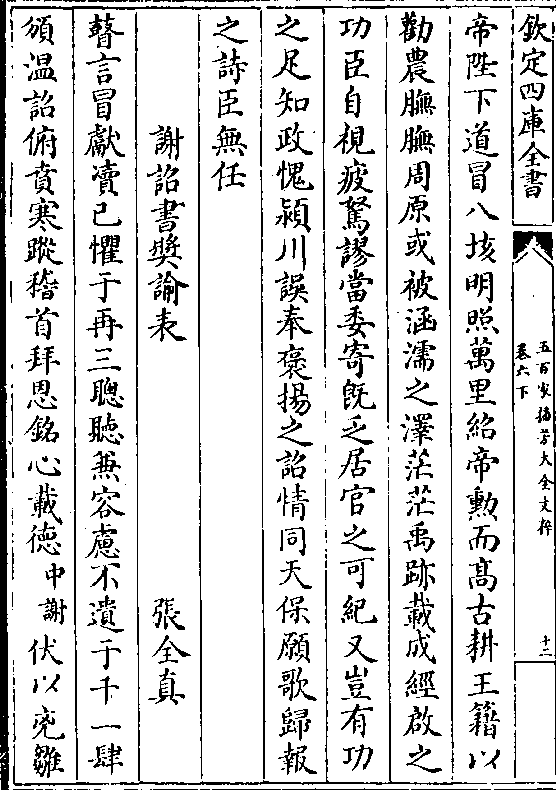 欽定四庫全書
五百家播芳大全文粹
卷六下
十二
帝陛下道冒八垓明照萬里紹帝勲而髙古耕王籍以
勸農膴膴周原或被涵濡之澤茫茫禹跡載成經啟之
功臣自視疲駑謬當委寄既乏居官之可紀又豈有功
之足知政愧潁川誤奉褒揚之詔情同天保願歌歸報
之詩臣無任
謝詔書奬諭表
張全真
瞽言冒獻凟已懼于再三聰聽兼容慮不遺于千一肆
頒温詔俯賁寒蹤稽首拜恩銘心載德中謝伏以堯雖